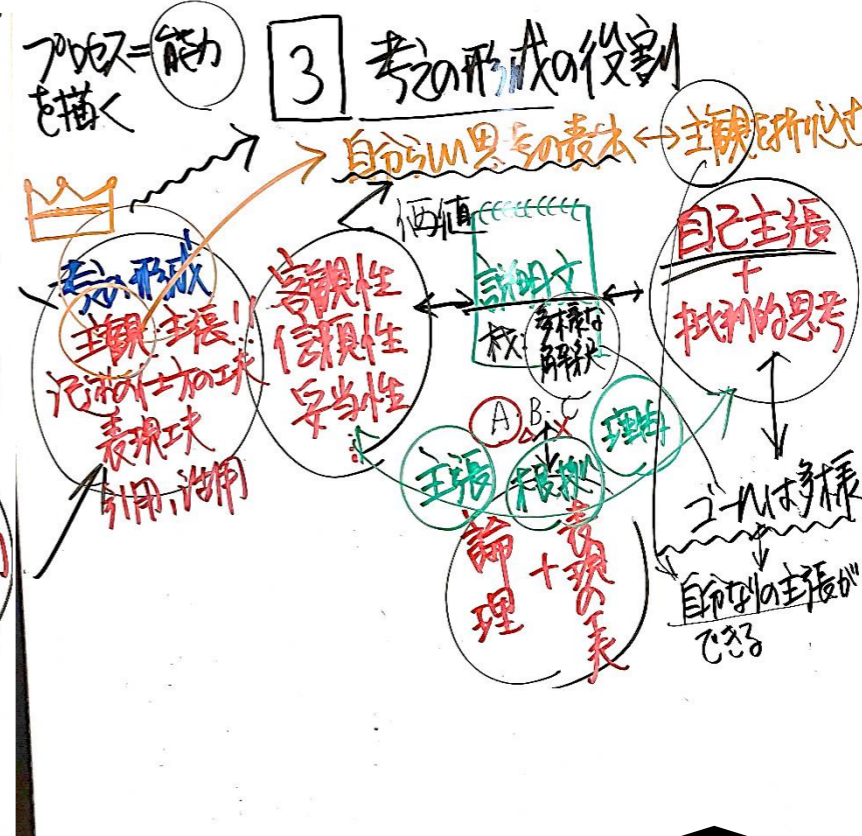 プロセス=能力
を描く
3 考えの形成の役割
自分らしい思考の表出 ↔ 主観を折り込む
考えの形成
主観・主張!!
記述の仕方の工夫
表現工夫
引用、活用
価値
客観性
信頼性
妥当性
説明文
核:多様な
解釈
自己主張
+
批判的思考
A・B・C
主張
根拠
理由
論理
+
表現の工夫
ゴールは多様
自分なりの主張が
できる